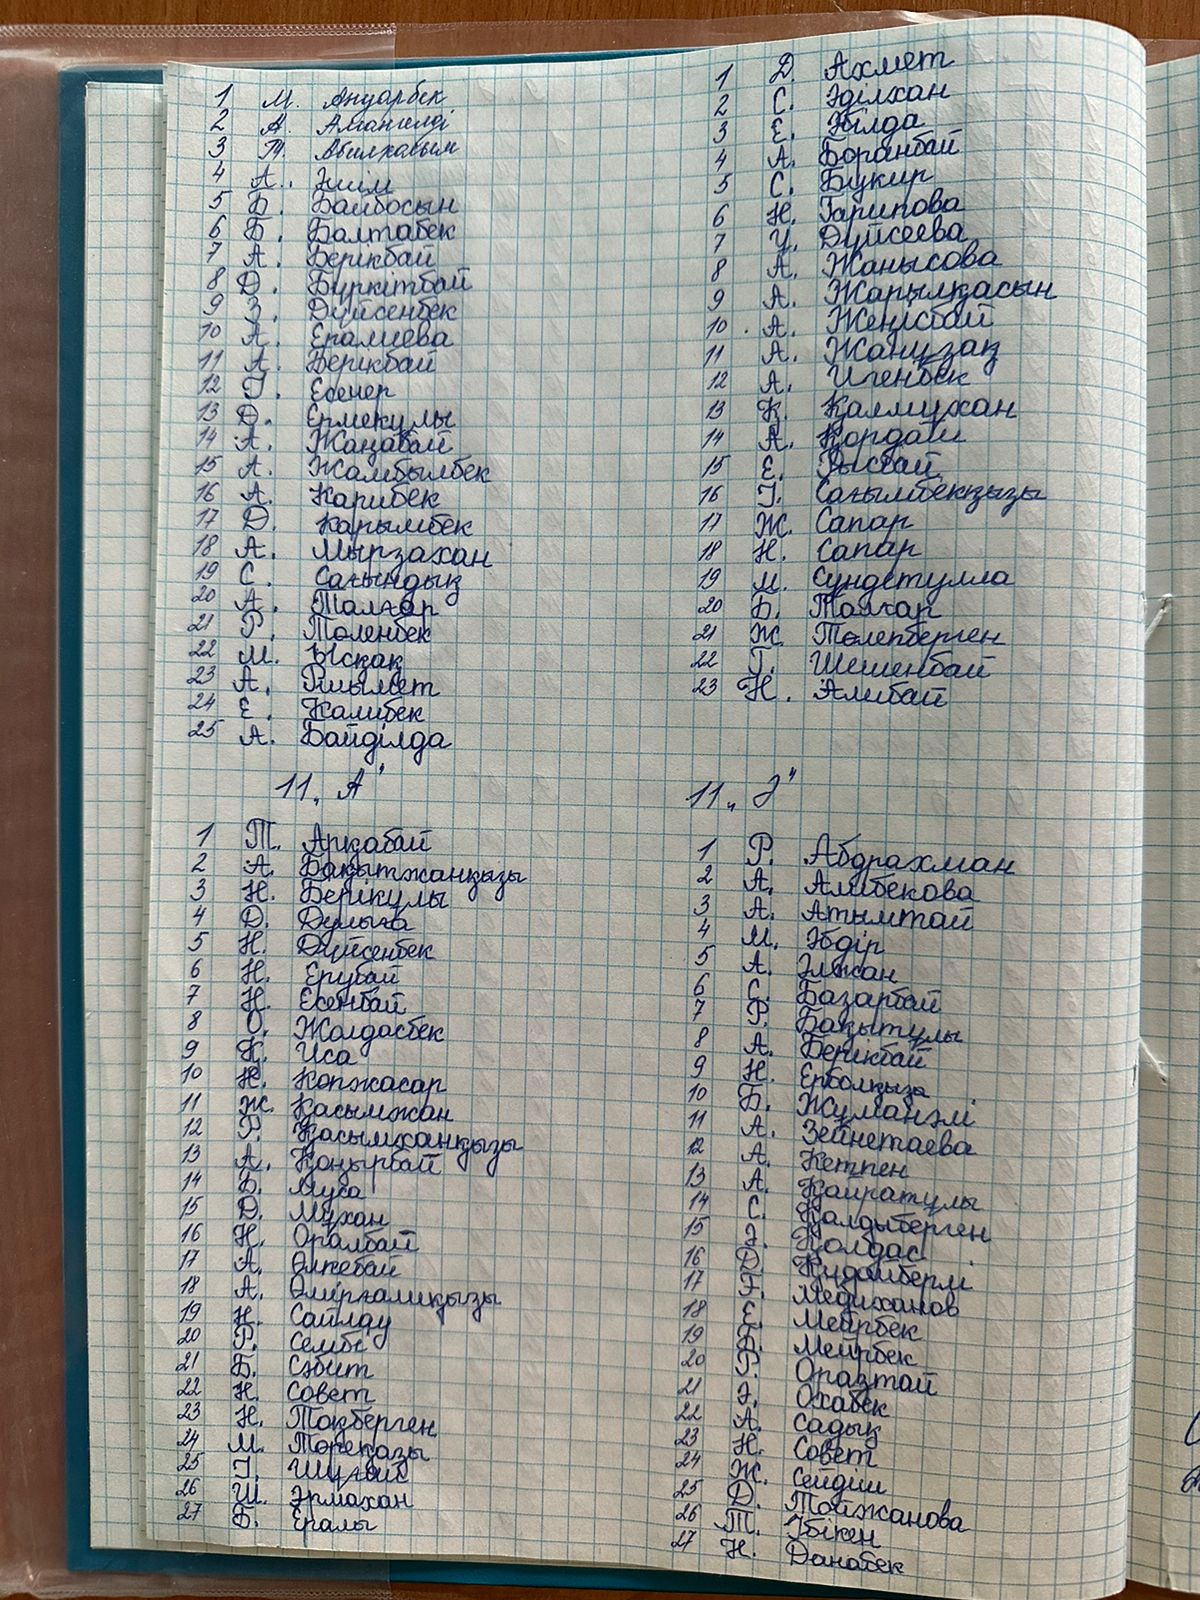 1 М. Ануарбек
2 А. Амангелді
3 Т. Абилкасым
4 А. Әшім
5 Б. Байбосын
6 Б. Балтабек
7 А. Берікбай
8 D. Бүркітбай
9 З. Дүйсенбек
10 А. Ералиева
11 А. Берікбай
12 Г. Есенер
13 D. Ермекұлы
14 А. Жаңабай
15 А. Жамбылбек
16 А. Карибек
17 D. Карымбек
18 А. Мырзахан
19 С. Сағындық
20 А. Талғар
21 Р. Төленбек
22 М. Ысқақ
23 А. Ршымет
24 Е. Калибек
25 А. Байділда
1 D. Ахмет
2 С. Әділхан
3 Е. Әбілда
4 А. Боранбай
5 С. Букир
6 Н. Гарипова
7 У. Дүйсеева
8 А. Жанысова
9 А. Жарылқасын
10 А. Жеңісбай
11 А. Жанұзақ
12 А. Игенбек
13 К. Қалмұхан
14 А. Қордай
15 Е. Рысбай
16 Г. Сағымбекқызы
17 Ж. Сапар
18 Н. Сапар
19 М. Сүндетулла
20 Б. Талғар
21 Ж. Төлепберген
22 Г. Шешенбай
23 Н. Әлибай
11 „А"
1 Т. Арқабай
2 А. Бақытжанқызы
3 Н. Берікұлы
4 D. Дулыға
5 Н. Дүйсенбек
6 Н. Ерубай
7 Н. Есенбай
8 О. Жолдасбек
9 Қ. Иса
10 Н. Көпжасар
11 Ж. Қасымжан
12 Р. Қасымханқызы
13 А. Қоңырбай
14 Б. Муса
15 D. Мұхан
16 Н. Оралбай
17 А. Өлкебай
18 А. Өмірғалиқызы
19 Н. Сайлау
20 Р. Сембі
21 Б. Сәбит
22 Н. Совет
23 Н. Тоқберген
24 М. Төреқазы
25 Г. Шуғай
26 Ш. Әрмахан
27 Б. Ералы
11 „Ә"
1 Р. Абдрахман
2 А. Алибекова
3 А. Атымтай
4 М. Әбдір
5 А. Әлжан
6 С. Базарбай
7 Р. Бақытұлы
8 А. Берікбай
9 Н. Ерболқызы
10 Б. Жуманәлі
11 А. Зейнетаева
12 А. Кетпен
13 А. Қайратұлы
14 С. Қалдыберген
15 Ә. Қолдас
16 D. Құдайберлі
17 Ғ. Медиханов
18 Е. Мейрбек
19 Б. Мейрбек
20 Р. Оразтай
21 Ә. Охабек
22 А. Садық
23 Н. Совет
24 Ж. Сейдіш
25 D. Тойжанова
26 Т. Үбікен
27 Н. Данабек